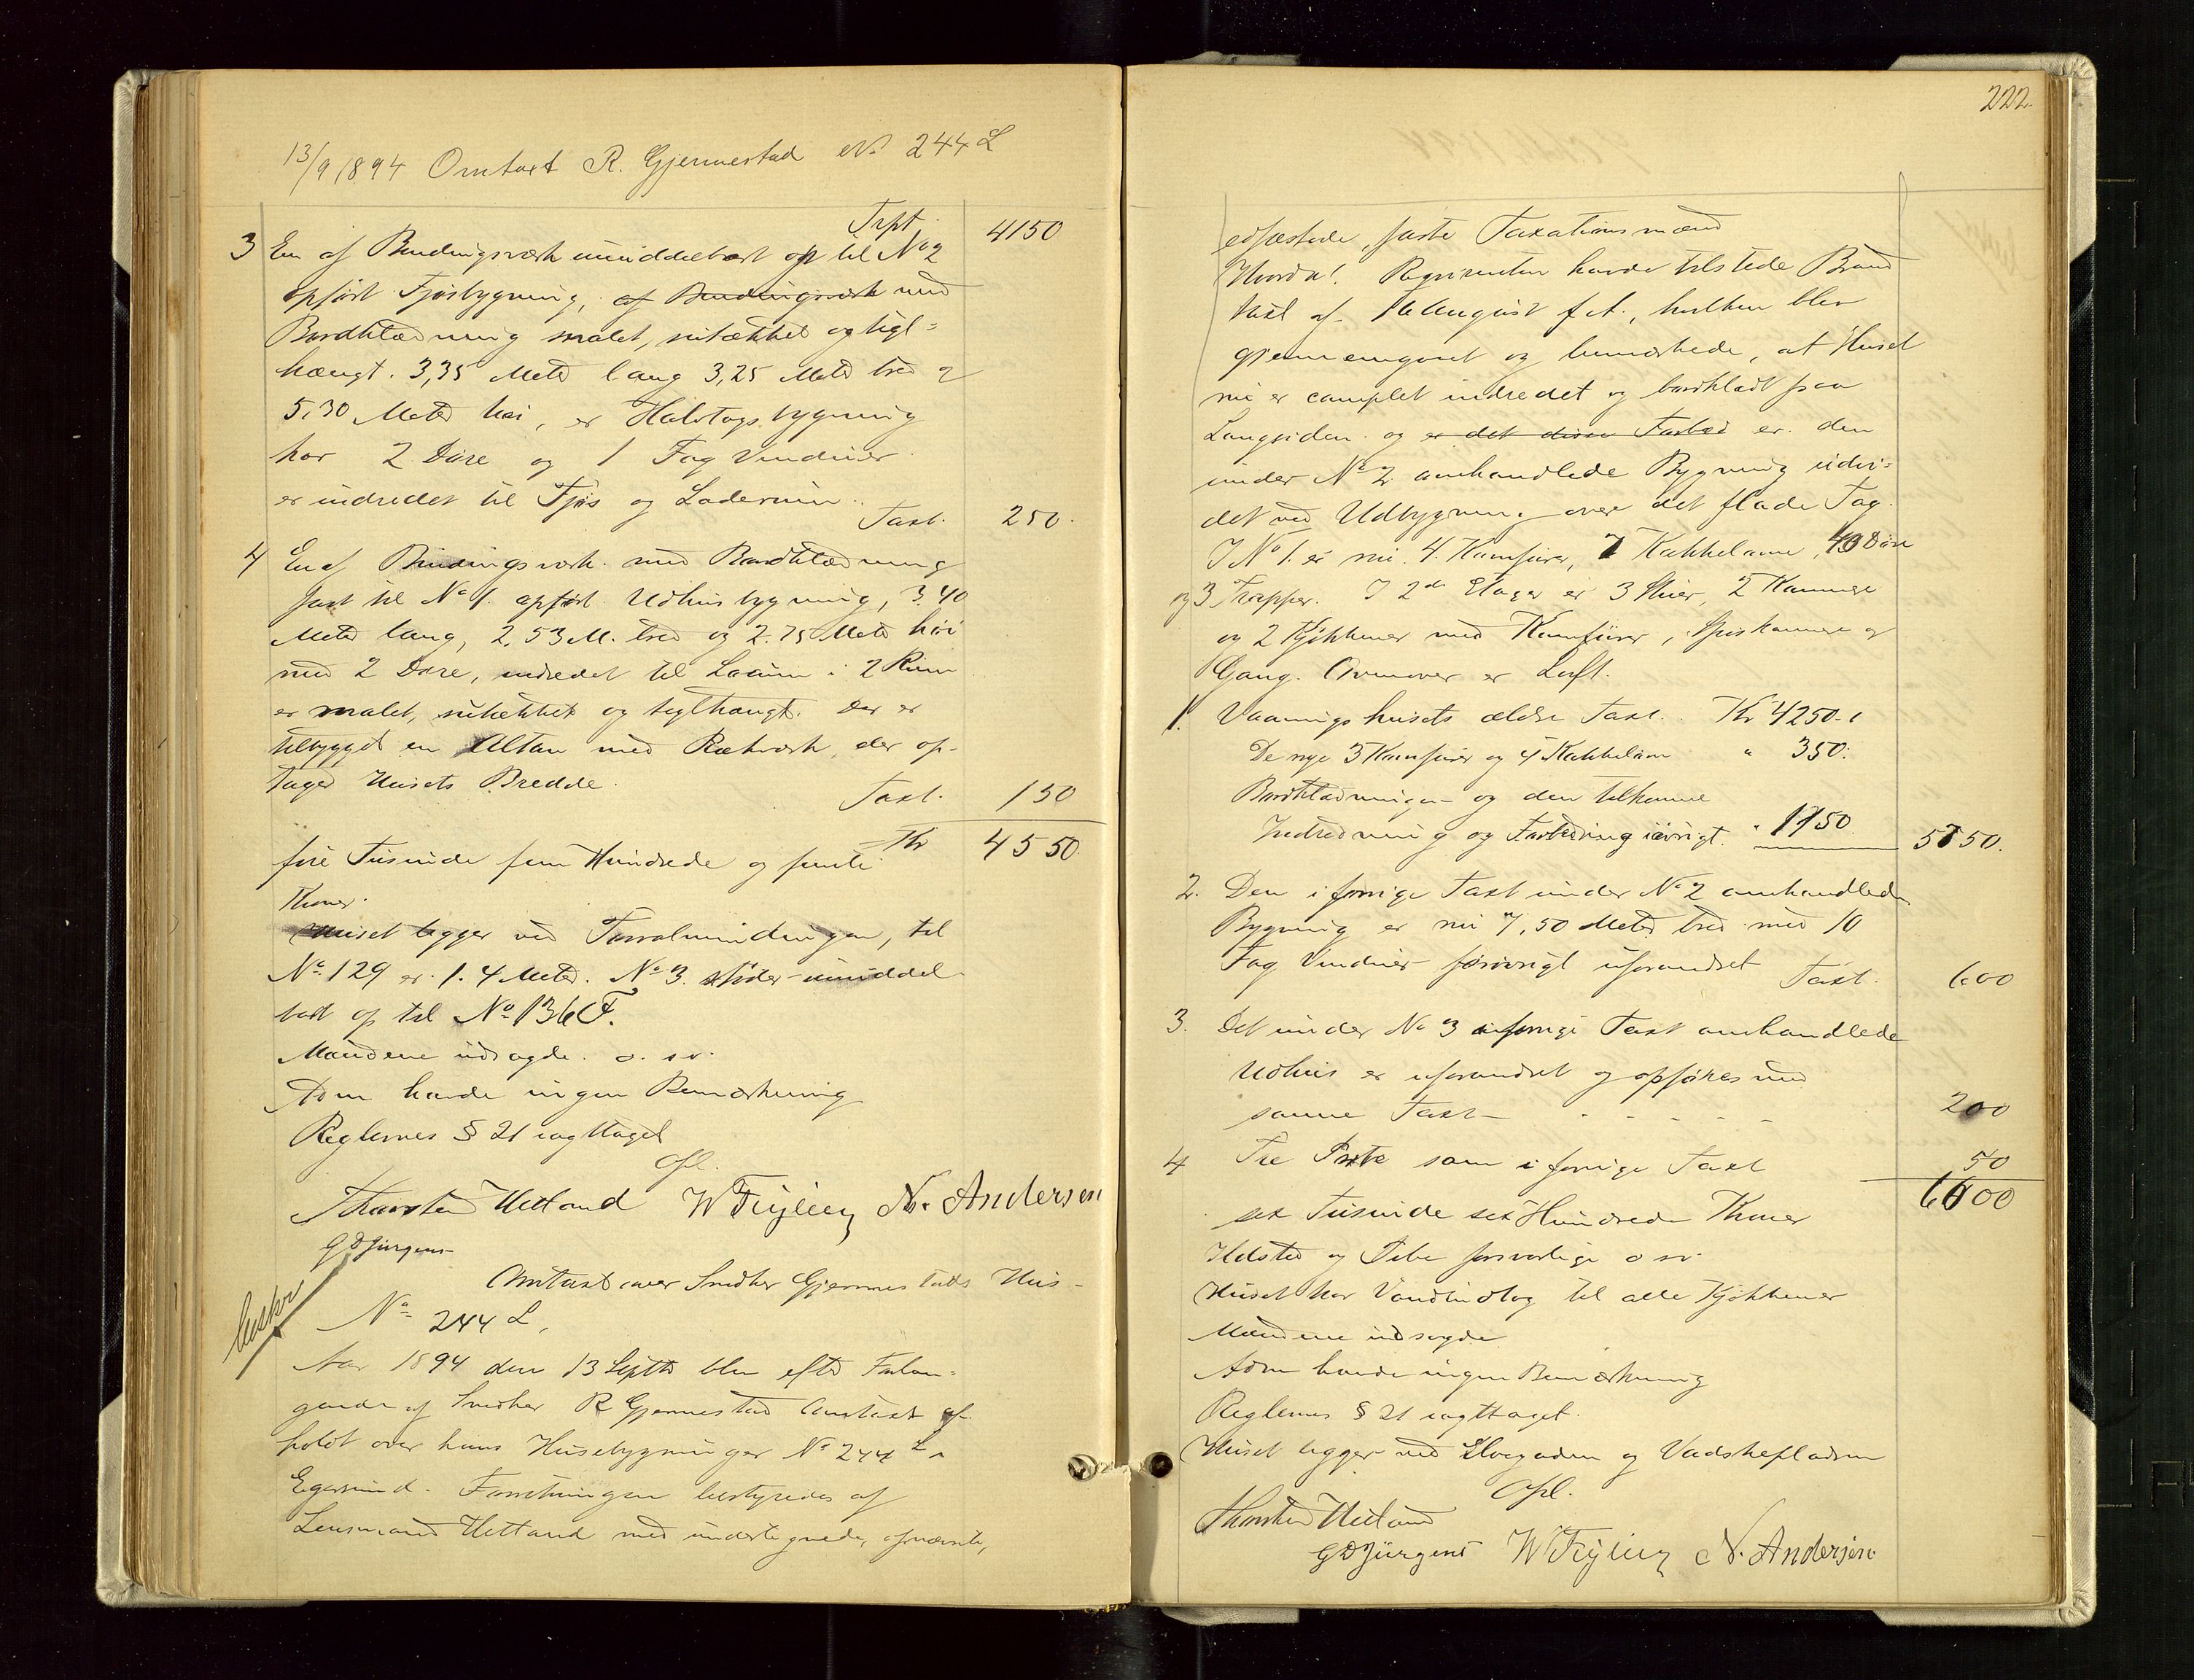 13/9 1894 Omtaxt R. Gjermestad No 244 L
Trpt. 4150
3 En af Bindingsværk umiddelbart op til No 2
opført Fjøsbygning, af Bindingsværk med
Bordklædning malet, sutækket og tegl-
hængt. 3,35 Meter lang 3,25 Meter bred og
5,30 Meter høi, er Halvtagsbygning
har 2 Døre og 1 Fag Vinduer.
er indredet til Fjøs og Laderum.
Taxt. 250.
4 En af Bindingsværk med Bordklædning
fast til No 1 opført Udhusbygning, 3.40
Meter lang, 2.53 M. bred og 2.75 Meter høi
med 2 Døre, indredet til i 2 Rum
er malet, sutækket og teglhængt. Der er
tilbygget en Altan med Rækværk, der op-
tager Husets Bredde.
Taxt. 150
Kr 4550
fire Tusinde fem Hundrede og femti
Kroner.
Huset ligger ved, til
No 129 er 1.4 Meter. No 3 støder umiddel-
bart op til No 136 F.
Mændene udsagde o. sv.
Adm havde ingen Bemærkning
Reglernes § 21 iagttaget
Opl.
Thorsten Hetland W Feyling N. Andersen
G D Jürgens
Omtaxt over Snedker Gjermestads Hus-
No 244 L,
Aar 1894 den 13 Septbr blev efter Forlan-
gende af Snedker R Gjermestad Omtaxt af-
holdt over hans Husebygninger No 244 L i
Egersund. Forretningen bestyredes af
Lensmand Hetland med undertegnede, opnævnte,
222.
edfæstede, faste Taxationsmænd
Hvorda! Rqvirenten havde tilstede Brand
taxt af 16 August f. A., hvilken blev
gjennemgaaet og bemærkede, at Huset
nu er complet indredet og bordklædt paa
Langsiden og er det disse Forbed er den
under No 2 omhandlede Bygning udvi-
det med Udbygning over det flade Tag.
I No 1. er nu 4 Komfurer, 7 Kakkelovne, 40 Døre
og 3 Trapper. I 2den Etager er 3 Stuer, 2 Kammere
og 2 Kjøkkener med Komfurer, Spiskammere og
Gang. Ovenover er Loft.
1. Vaaningshusets ældre Taxt. Kr 4250.
De nye 3 Komfurer og 4 Kakkelovne " 350.
Bordklædningen og den tilkomne
Indredning og Forbedring iøvrigt " 1150 5750.
2. Den i forrige Taxt under No 2 omhandlede
Bygning er nu 7,50 Meter bred med 10
Fag Vinduer forøvrigt uforandret Taxt. 600
3. Det under No 3 i forrige Taxt omhandlede
Udhus er uforandret og opføres med
samme Taxt - - - - - 200
4 Tre som i forrige Taxt 50
6600
sex Tusinde sex Hundrede Kroner
Ildsted og Pibe forsvarlige o sv
Huset har Vandindlæg til alle Kjøkkener
Mændene udsagde
Adm havde ingen Bemærkning
Reglernes § 21 iagttaget.
Huset ligger ved Elvegaden og
Opl.
Thorsten Hetland
G D Jürgens W Feyling N. Andersen